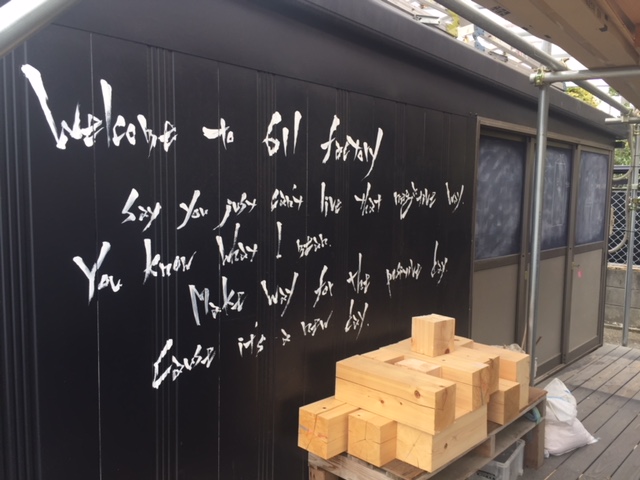 Welcome to 611 factory
Say you just can't live that negative way.
You know what I mean.
Make way for the positive day.
Cause it's a new day.